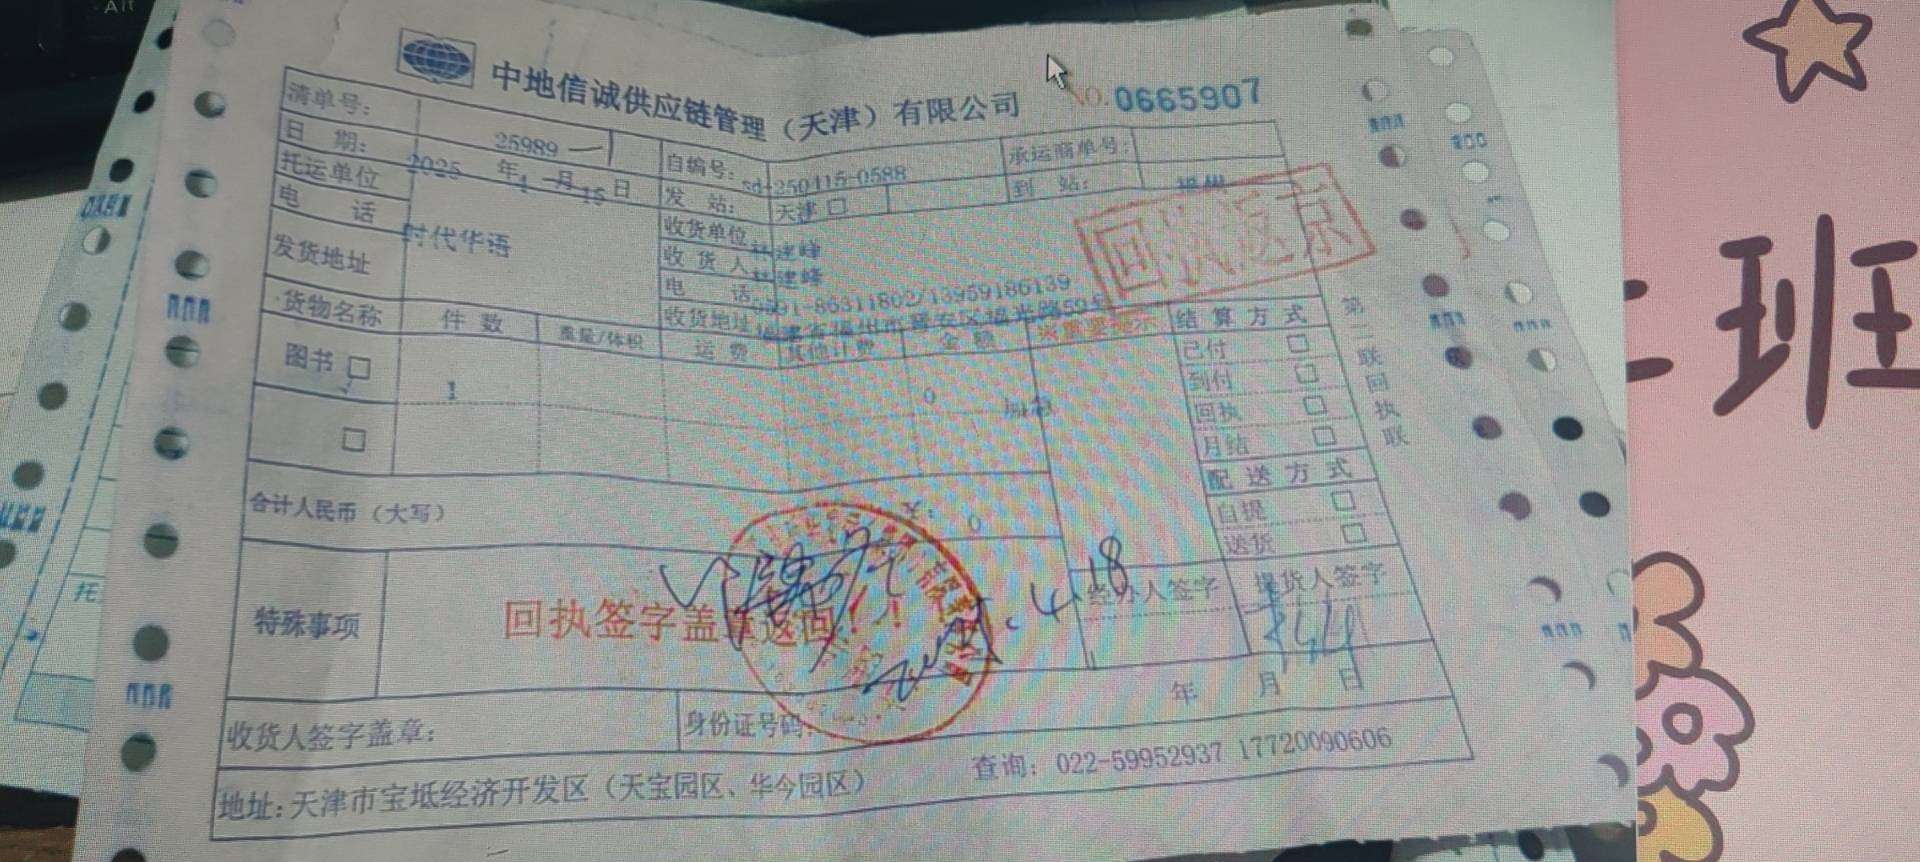 中地信诚供应链管理（天津）有限公司
NO. 0665907
清单号：
25989
自编号：
sd-250415-0588
承运商单号：
日 期：
2025 年 4 月 15 日
发 站：
天津 □
到 站：
福州
托运单位
时代华语
电 话
发货地址
收货单位
林建峰
收 货 人
林建峰
电 话
0591-86311802/13959186139
收货地址
福建省福州市晋安区福光路59号
回执返京
货物名称
件 数
重量/体积
运 费
其他计费
金 额
※重要提示
结 算 方 式
图书 □
1
0
加急
已付 □
到付 □
回执 □
月结 □
□
配 送 方 式
自提 □
送货 □
合计人民币（大写）
0
特殊事项
回执签字盖章返回！！
经办人签字
提货人签字
4.18
年 月 日
收货人签字盖章：
身份证号码：
地址：天津市宝坻经济开发区（天宝园区、华今园区）
查询：022-59952937 17720090606
第二联 回执联
班
Alt
托